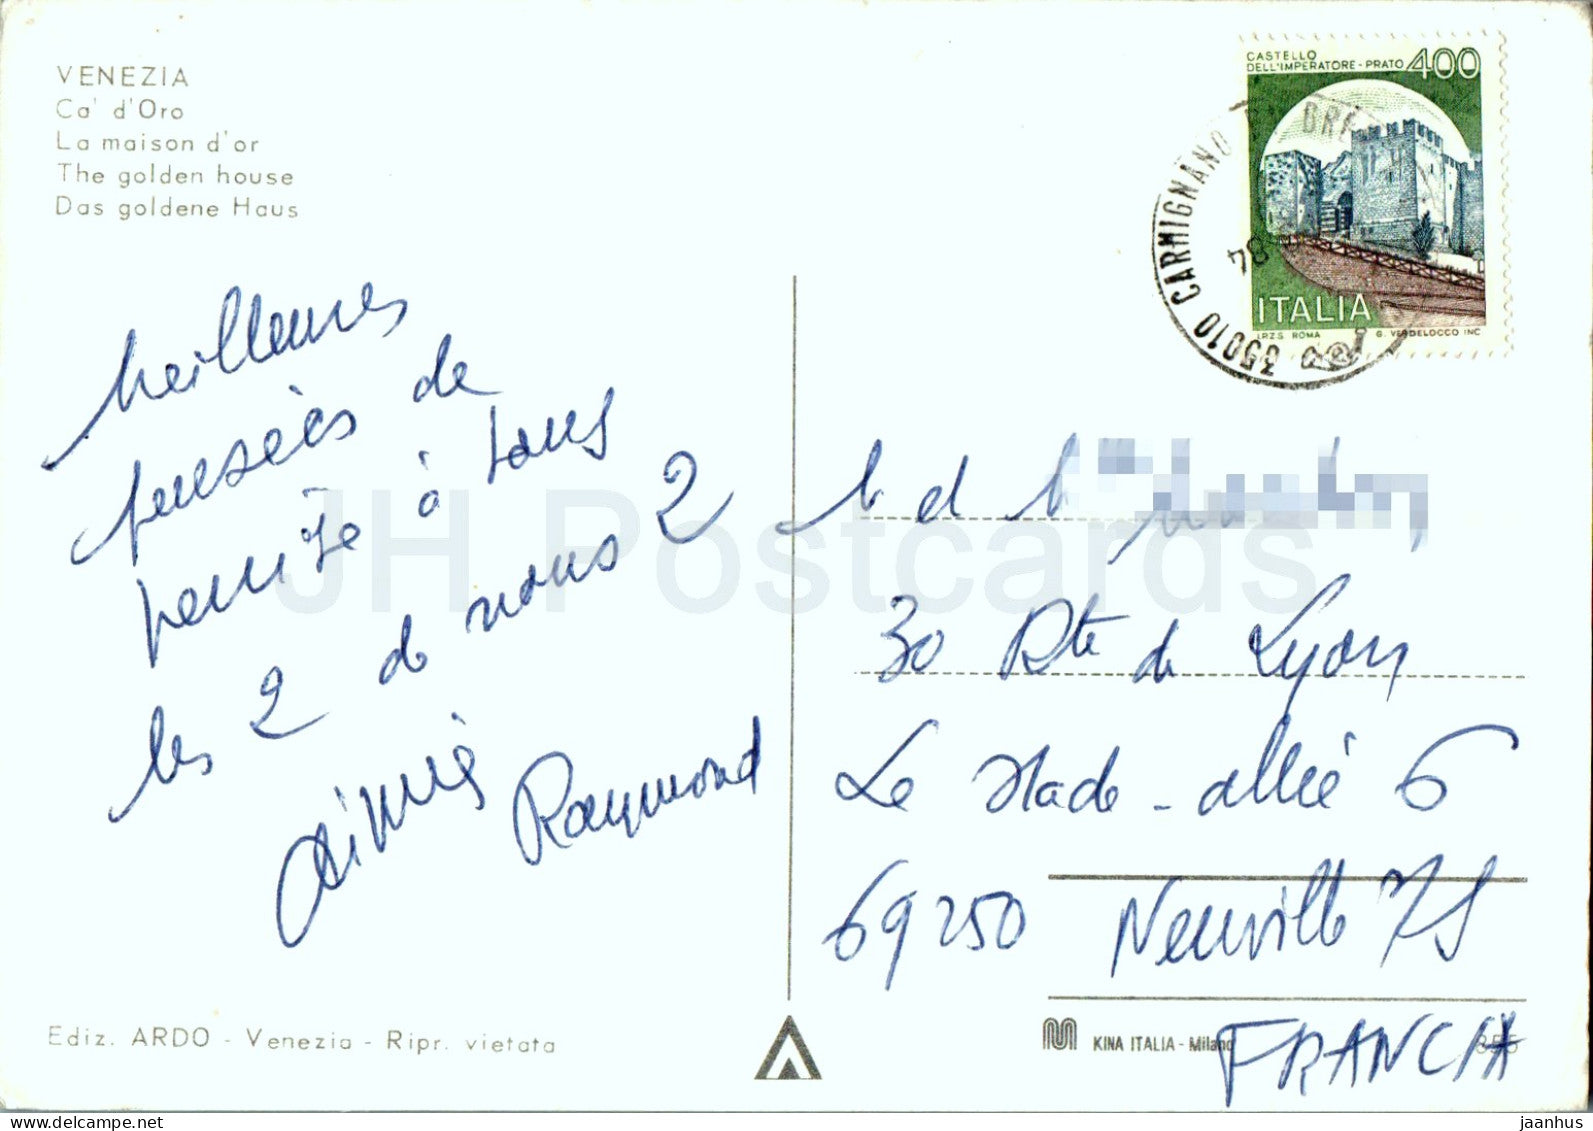 VENEZIA
Ca' d'Oro
La maison d'or
The golden house
Das goldene Haus
CASTELLO
DELL'IMPERATORE - PRATO 400
ITALIA
I.P.Z.S. ROMA G. VERDELOCCO INC
35010 CARMIGNANO DI BRE
84
Meilleures
pensées de
à tous
les 2 de nous 2
Aimée Raymond
M et M
30 Rte de Lyon
Le Stade - allée 6
69250 Neuville /S
FRANCIA
Ediz. ARDO - Venezia - Ripr. vietata
KINA ITALIA - Milano
JH Postcards
jaanhus